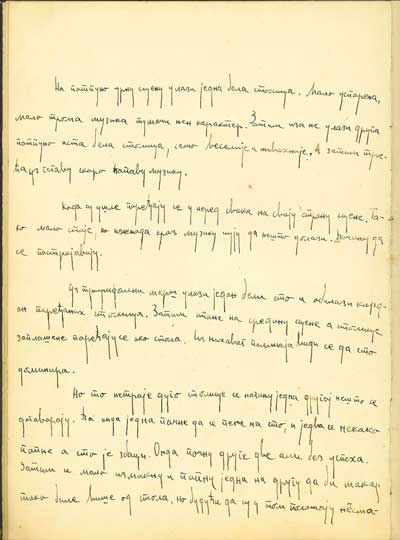 На потпуно црну сцену улази једна бела столица. Мало успорена,
мало трома музика тумачи њен карактер. Затим иза ње улази друга
потпуно иста бела столица, само веселије и живахније. А затим тре-
ћа уз музику.
Када су ушле поређају се у поред свака на своју страну сцене. Та-
ко мало стоје, но кроз музику чују да нешто долази. Почину да
се постројавају.
Уз тријумфални марш улази један бели сто и обилази кордо-
н поређаних столица. Затим стане на средину сцене а столице
заплашене поређају се око стола. Из њиховог положаја види се да сто
доминира.
Но то не траје дуго столице се начину једна другој нешто се
договарају. Па онда једна почне да и пење на сто, и једва се некако
попне а сто је збаци. Онда почну друге две али без успеха.
Затим се мало измакну и попну једна на другу да би макар
тако биле више од стола, но будући да су у том положају неста-